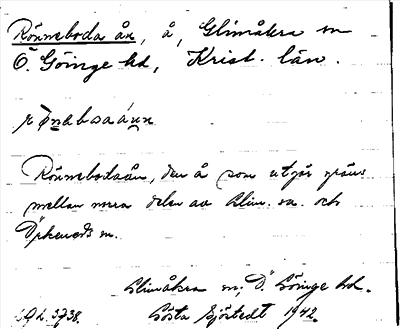 Rönneboda ån, å, Glimåkra sn
Ö. Göinge hd, Krist. län.
Rönnebodaån, den å som utgör gräns
mellan norra delen av Glim. sn. och
Örkeneds sn.
Glimåkra sn; Ö. Göinge hd.
Gösta Sjöstedt 1942.